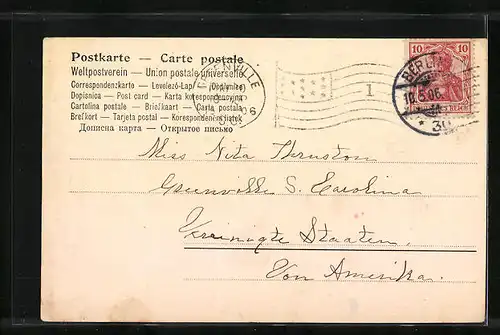 Postkarte — Carte postale
Weltpostverein — Union postale universelle
Correspondenzkarte — Levelező-Lap
Dopisnica — Post card — Karta korespondencyjna
Cartolina postale — Briefkaart — Carta postala
Brefkort — Tarjeta postal — Korespondenční lístek
Дописна карта — Открытое письмо
GREENVILLE
1
10 10
BERLIN
10.5.06.
Miss Nita Thruston
Greenville S. Carolina
Vereinigte Staaten.
Von Amerika.